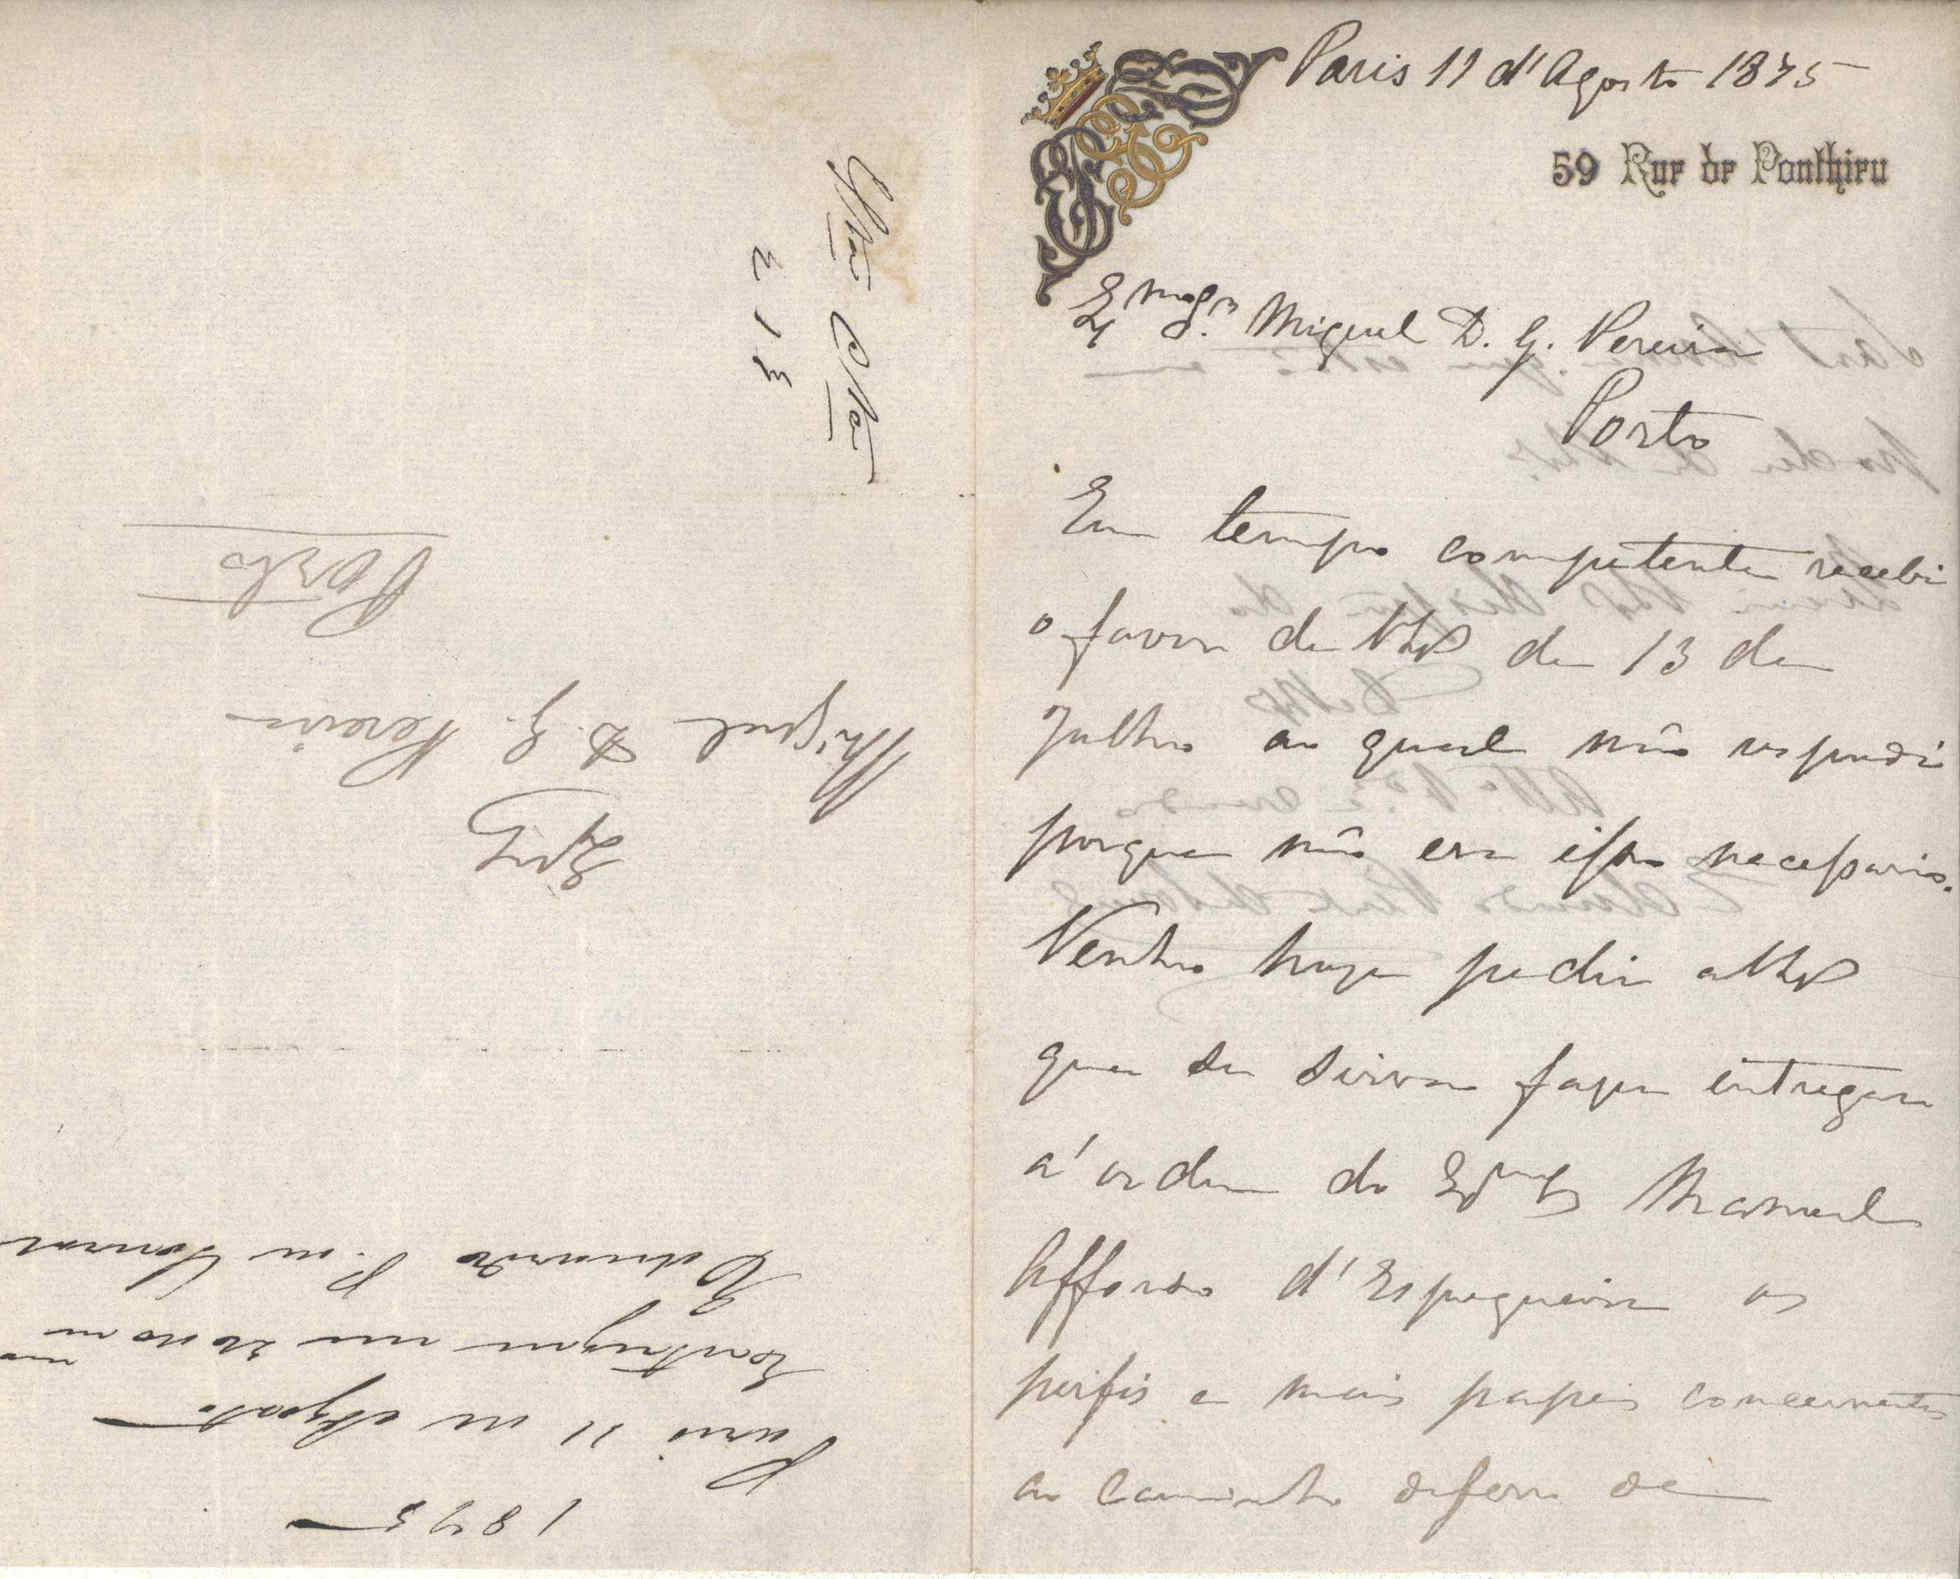 Paris 11 d'Agosto 1875
59 Rue de Ponthieu
Exmo Snr Miguel D. G. Pereira
Porto
Em tempo competente recebi
o favor de VExª de 13 de
Julho ao qual não respondi
porque não era isso necessario.
Venho hoje pedir a VExª
que se sirva fazer entregar
á ordem do Exmo Snr Manuel
Affonso d'Espregueira os
perfis e mais papeis concernentes
ao Caminho de ferro de
1875
Paris 11 de Agosto
Eduardo P. de
Miguel D. G. Pereira
Porto